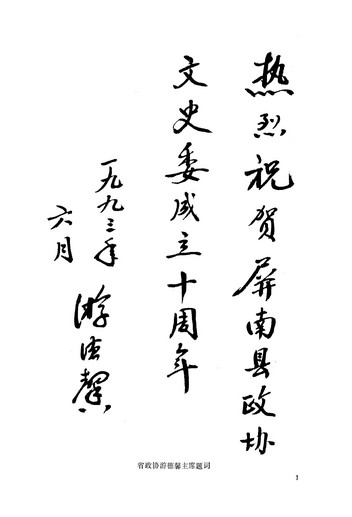 热烈祝贺屏南县政协
文史委成立十周年
一九九三年
六月
游德馨
省政协游德馨主席题词
1